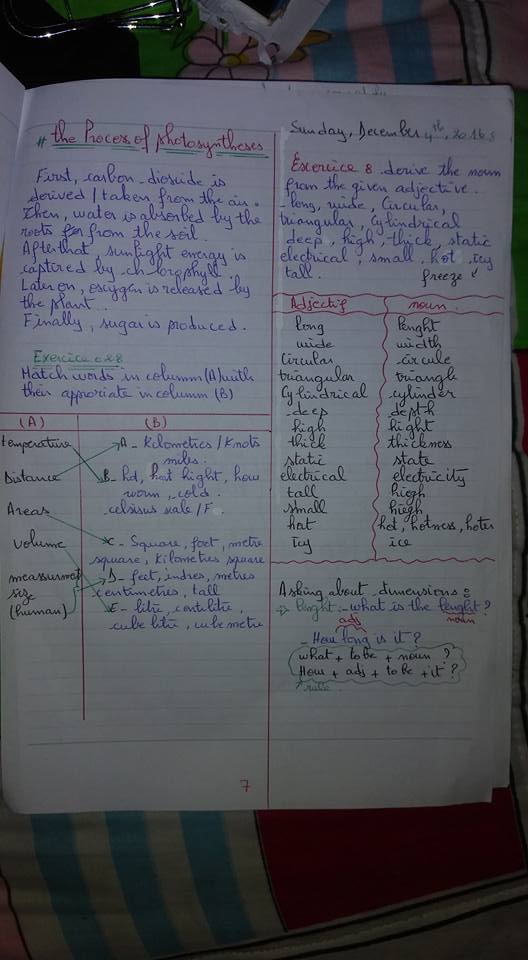 # the Proces of photosyntheses
First, carbon dioxide is
derived / taken from the air.
then, water is absorbed by the
roots from the soil.
After that, sunlight energy is
captired by chlorophyll.
Later on, oxygen is released by
the plant.
Finally, sugar is produced.
Exercice
Match words in columm (A) with
their approriate in columm (B)
(A) (B)
temperature
Distance
Areas
volume
measurmat
size
(human)
A - Kilometics / Knots
miles.
B - hot, hight, how
worm, cold.
celsius scale / F.
C - Square, foot, metre
square, Kilometres square
D - feet, inches, metres
centimetres, tall
E - litre, centilitre,
cube litre, cube metre
7
Sunday, December 4th, 2016
Exercice 8 derive the noun
from the given adjective.
long, wide, Circular,
triangular, Cylindrical
deep, high, thick, static
electrical, small, hot, icy
tall. freeze
Adjectif noun
long lenght
wide width
Circular circule
triangular triangle
Cylindrical cylinder
deep depth
high hight
thick thickness
static state
electrical electricity
tall high
small high
hot hot, hotness, hoter
icy ice
Asking about dimensions :
lenght - what is the lenght ?
adj noun
- How long is it ?
what + to be + noun ?
How + adj + to be + it ?
rule